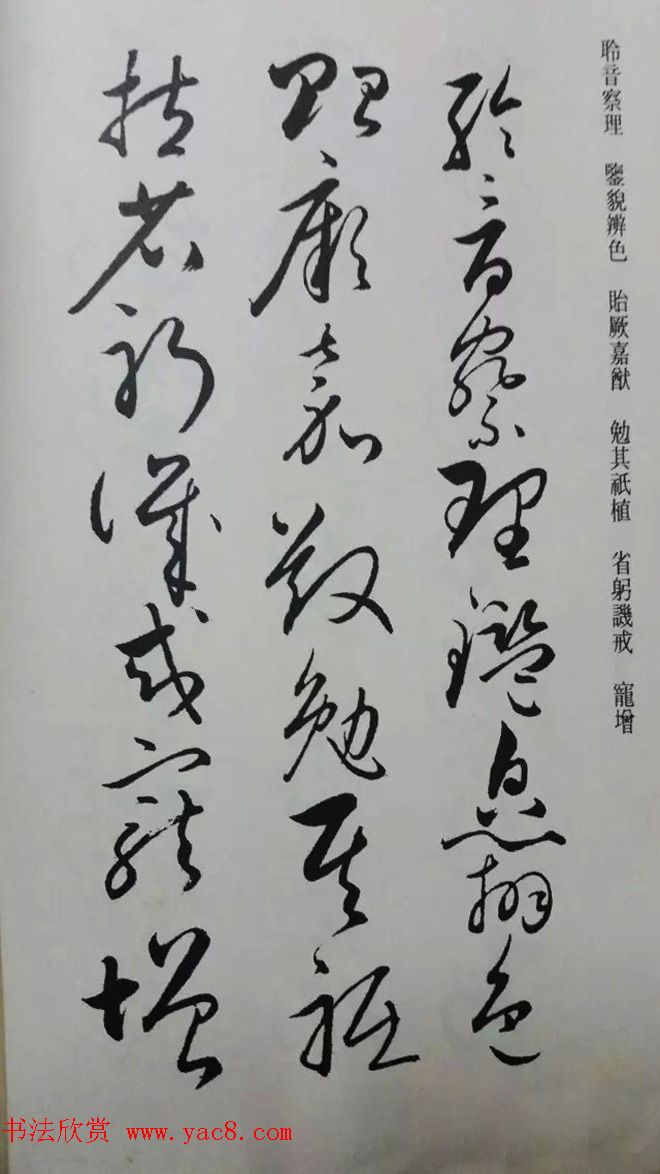 聆音察理　鑒貌辨色　貽厥嘉猷　勉其祇植　省躬譏戒　寵增
聆音察理鑑皃辨色
貽厥嘉猷勉其祇
植省躬譏戒寵增
书法欣赏 www.yac8.com